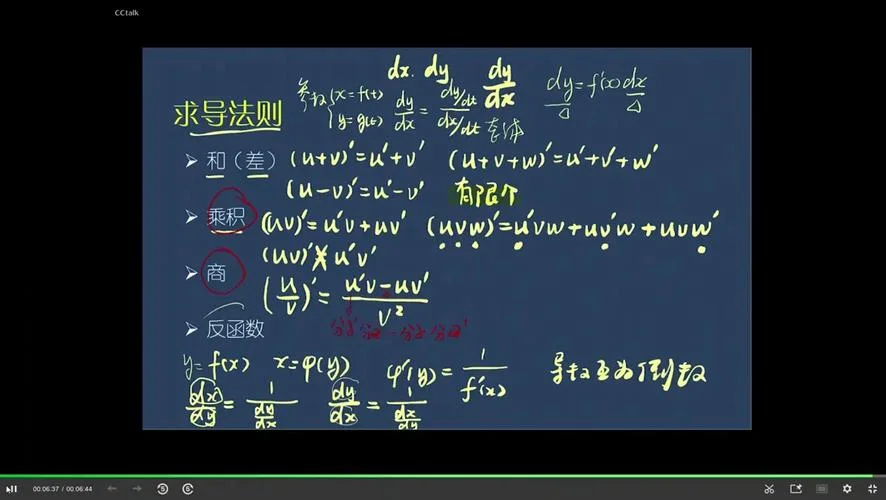 CCtalk
dx. dy dy/dx
参数{x=f(t) y=g(t) dy/dx = dy/dt / dx/dt 整体
dy=f'(x)dx
求导法则
和（差） (u+v)'=u'+v' (u+v+w)'=u'+v'+w'
(u-v)'=u'-v' 有限个
乘积 (uv)'=u'v+uv' (uvw)'=u'vw+uv'w+uvw'
(uv)'≠u'v'
商 (u/v)'= u'v-uv' / v²
反函数 分子'分母-分子·分母'
y=f(x) x=φ(y) φ'(y)= 1/f'(x) 导数互为倒数
dx/dy = 1/(dy/dx) dy/dx = 1/(dx/dy)
00:06:37 / 00:06:44